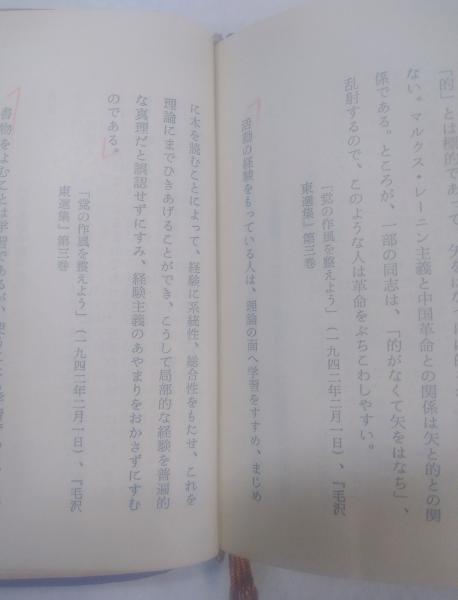 「的」とは標的であって、矢をはなつには的
ない。マルクス・レーニン主義と中国革命との関係は矢と的との関
係である。ところが、一部の同志は、「的がなくて矢をはなち」、
乱射するので、このような人は革命をぶちこわしやすい。
「党の作風を整えよう」(一九四二年二月一日)、『毛沢
東選集』第三巻
活動の経験をもっている人は、理論の面へ学習をすすめ、まじめ
に本を読むことによって、経験に系統性、総合性をもたせ、これを
理論にまでひきあげることができ、こうして局部的な経験を普遍的
な真理だと誤認せずにすみ、経験主義のあやまりをおかさずにすむ
のである。
「党の作風を整えよう」(一九四二年二月一日)、『毛沢
東選集』第三巻
書物をよむことは学習であるが、使うことも学習で